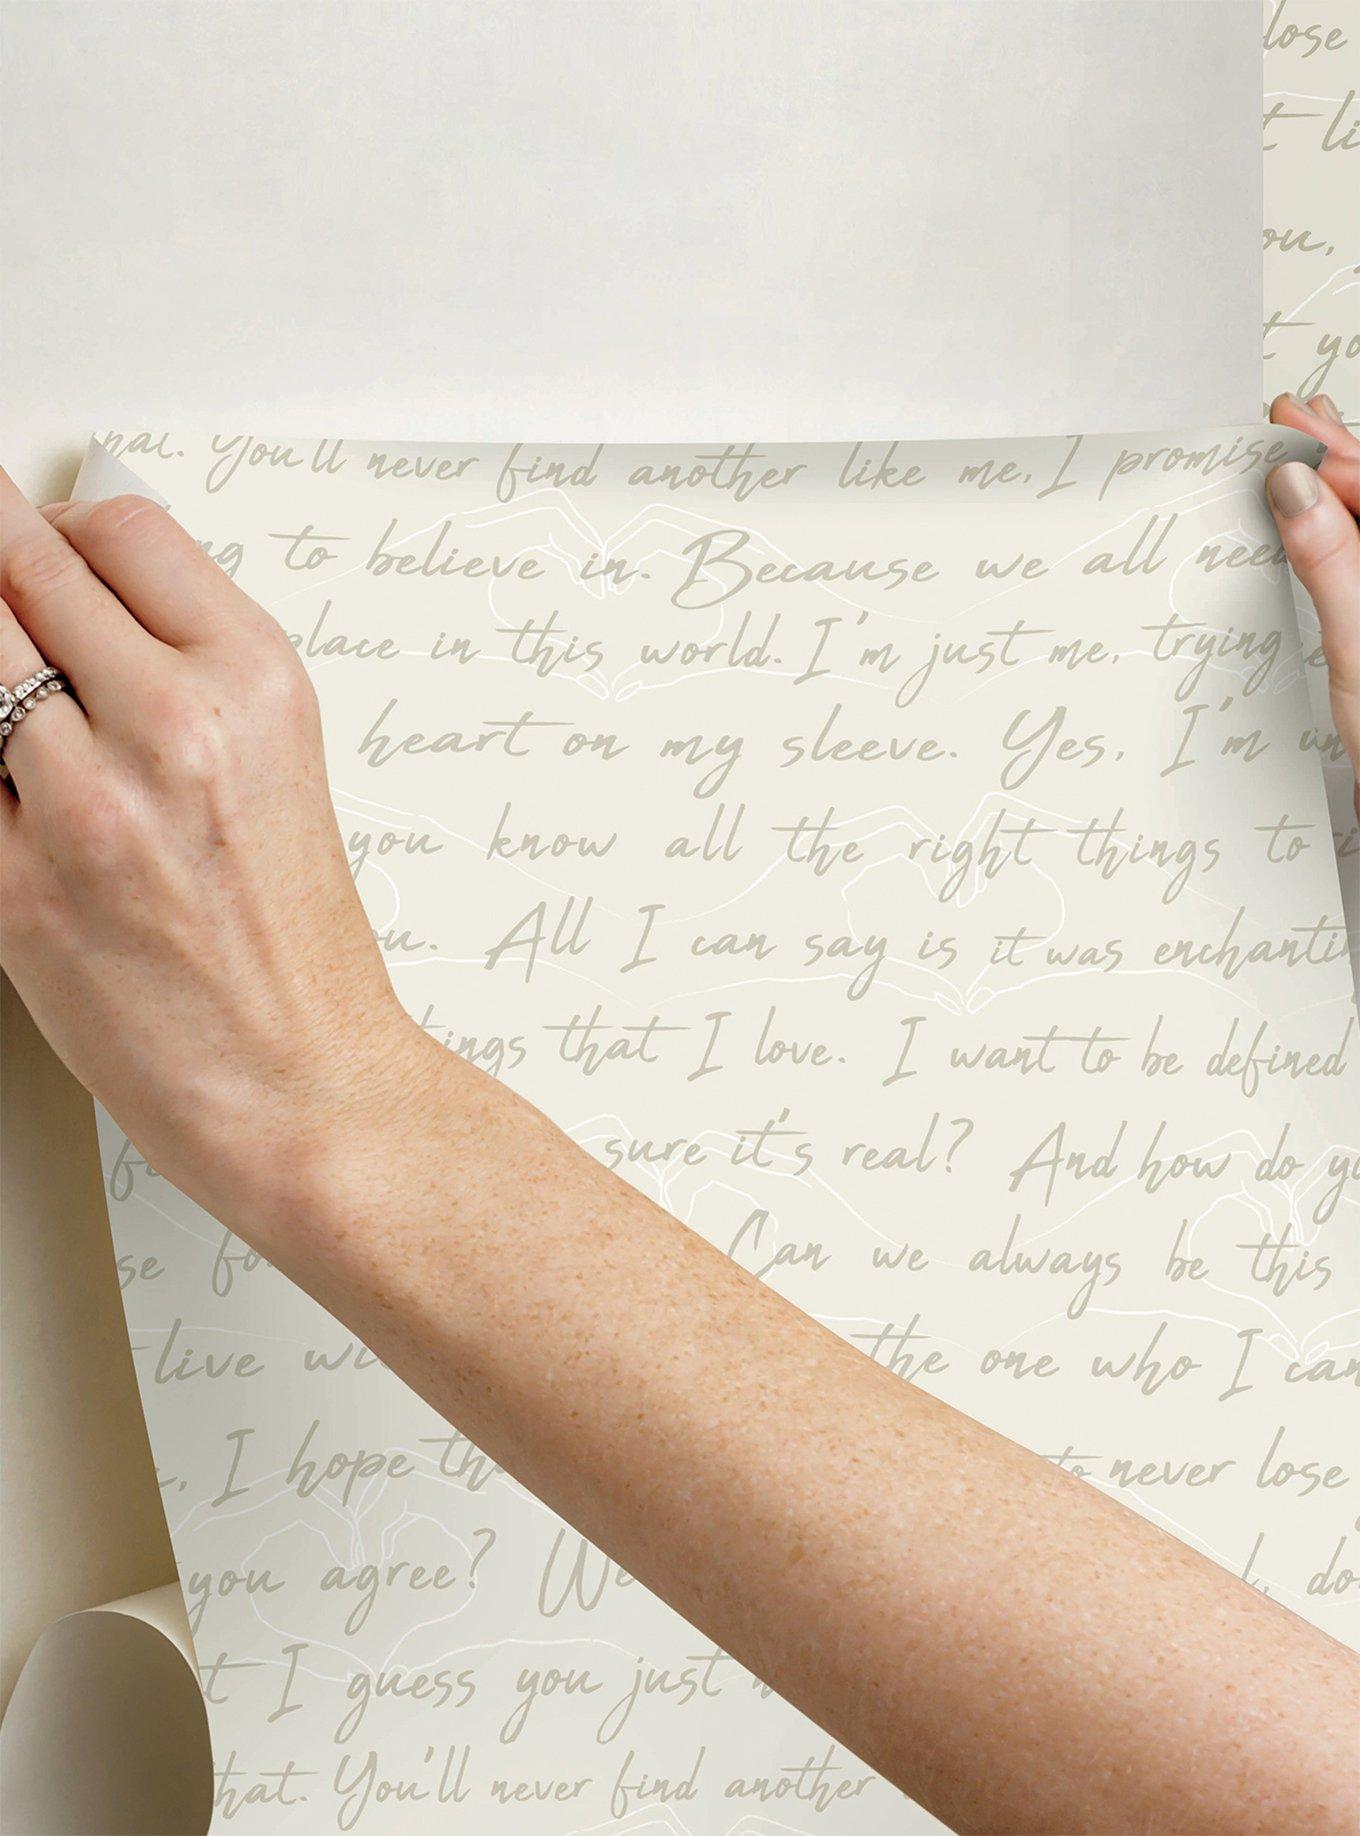 lose
t li
ou,
t yo
hat. You'll never find another like me, I promise
ng to believe in. Because we all need
place in this world. I'm just me, trying
heart on my sleeve. Yes, I'm un
you know all the right things to
ou. All I can say is it was enchanti
ings that I love. I want to be defined
sure it's real? And how do yo
se fo Can we always be this
live wi the one who I can
, I hope th to never lose
you agree? We , do
t I guess you just
hat. You'll never find another